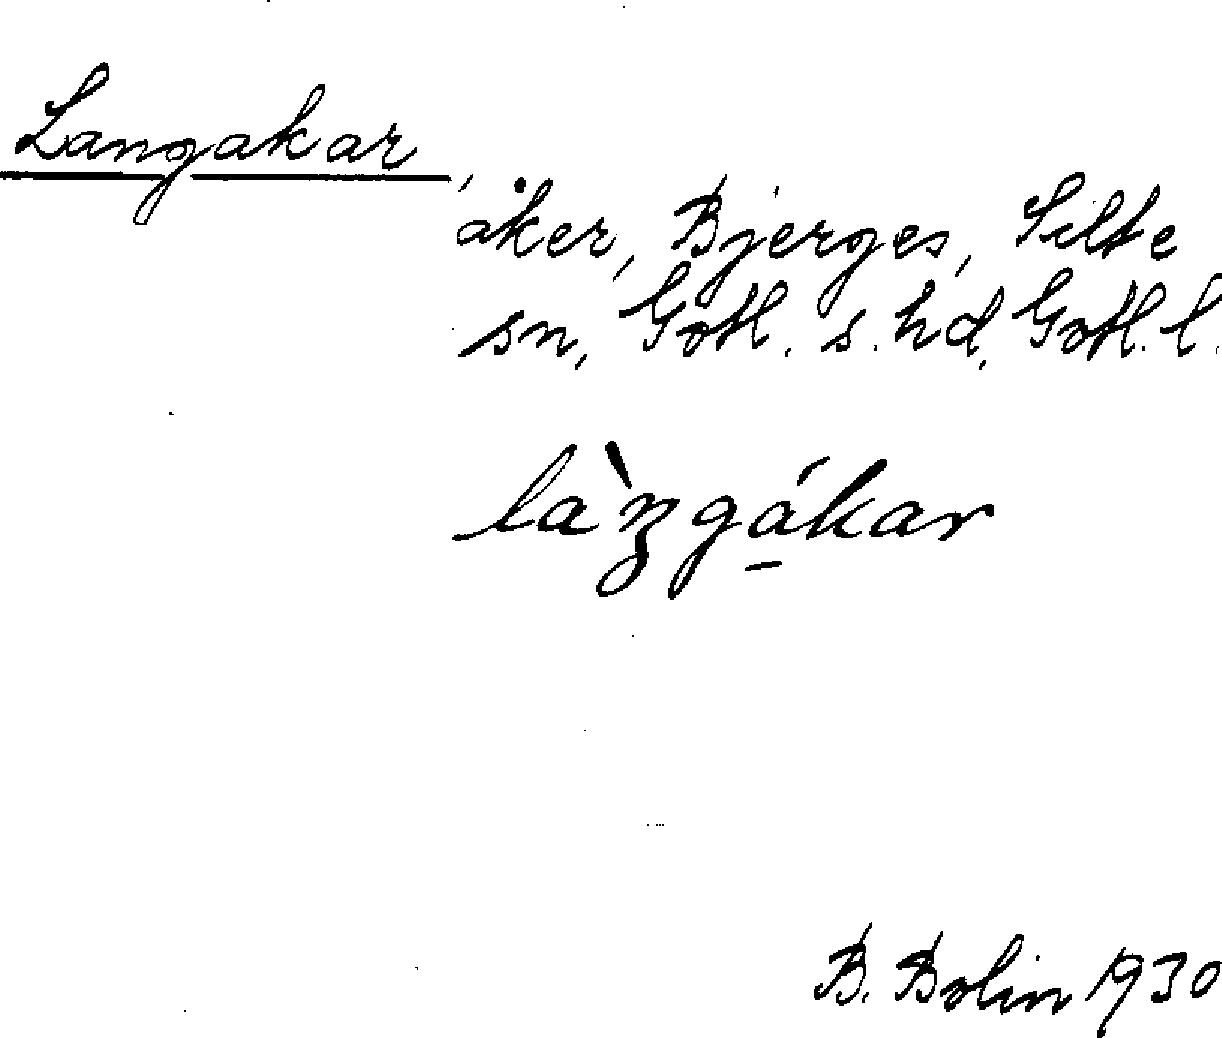 Langakar,
åker, Bjerges, Silte
sn, Gotl. s. hd, Gotl. l.
là̀ŋgákar
B. Bolin 1930